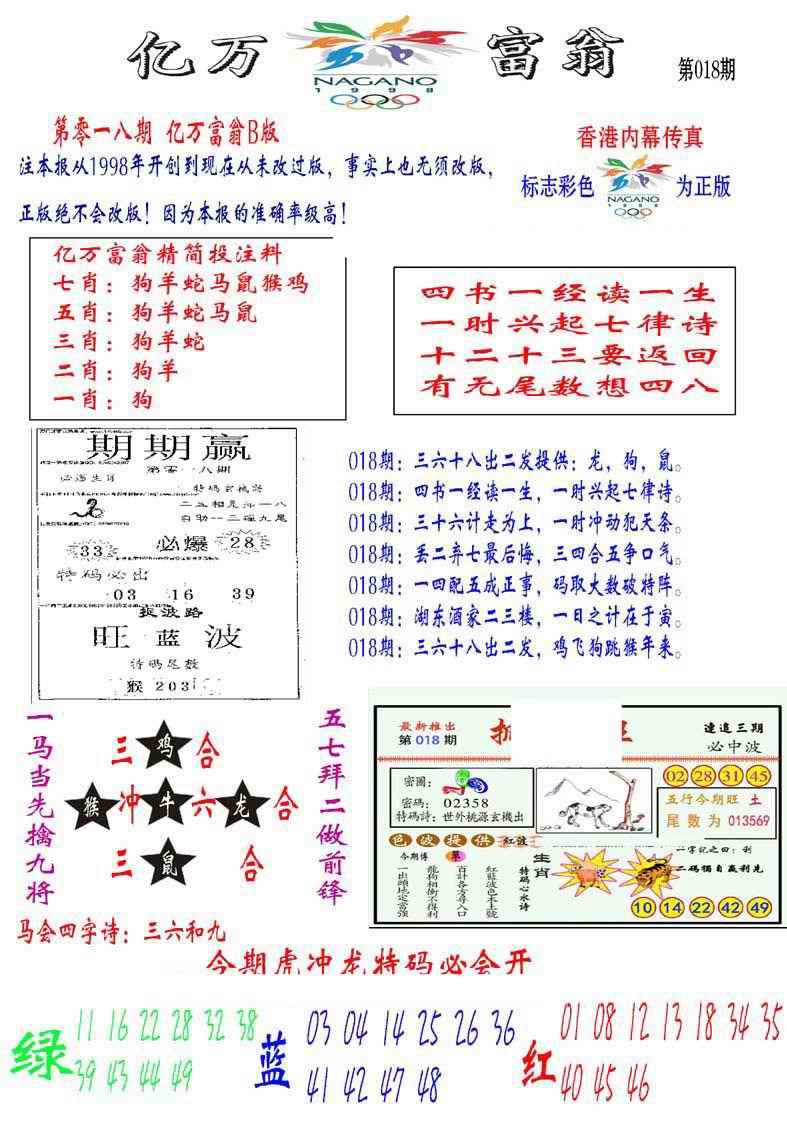 亿万富翁
NAGANO
1998
第018期
第零一八期 亿万富翁B版
注本报从1998年开创到现在从未改过版，事实上也无须改版，
正版绝不会改版！因为本报的准确率级高！
香港内幕传真
标志彩色 NAGANO 为正版
亿万富翁精简投注料
七肖：狗羊蛇马鼠猴鸡
五肖：狗羊蛇马鼠
三肖：狗羊蛇
二肖：狗羊
一肖：狗
四书一经读一生
一时兴起七律诗
十二十三要返回
有无尾数想四八
期期赢
第零一八期
必爆
33
28
特码必出
03 16 39
捉波路
旺蓝波
特码尾数
猴 203
018期：三六十八出二发提供：龙，狗，鼠。
018期：四书一经读一生，一时兴起七律诗。
018期：三十六计走为上，一时冲动犯天条。
018期：丢二弃七最后悔，三四合五争口气。
018期：一四配五成正事，码取大数破特阵。
018期：湖东酒家二三楼，一日之计在于寅。
018期：三六十八出二发，鸡飞狗跳猴年来。
一马当先擒九将
三 鸡 合
猴 冲 牛 六 龙 合
三 鼠 合
五七拜二做前锋
马会四字诗：三六和九
最新推出
第018期
速追三期
必中波
密圖：
密碼：02358
特碼詩：世外桃源玄機出
02 28 31 45
五行今期旺 土
尾数为 013569
色波提供 紅波
今期博
一出頭地定富强
龍狗相衝不得利
百計各方尋入口
紅藍波色本土號
特码心水诗
生肖
一字記之曰：利
二码獨自贏利先
10 14 22 42 49
今期虎冲龙特码必会开
绿
11 16 22 28 32 38
39 43 44 49
蓝
03 04 14 25 26 36
41 42 47 48
红
01 08 12 13 18 34 35
40 45 46